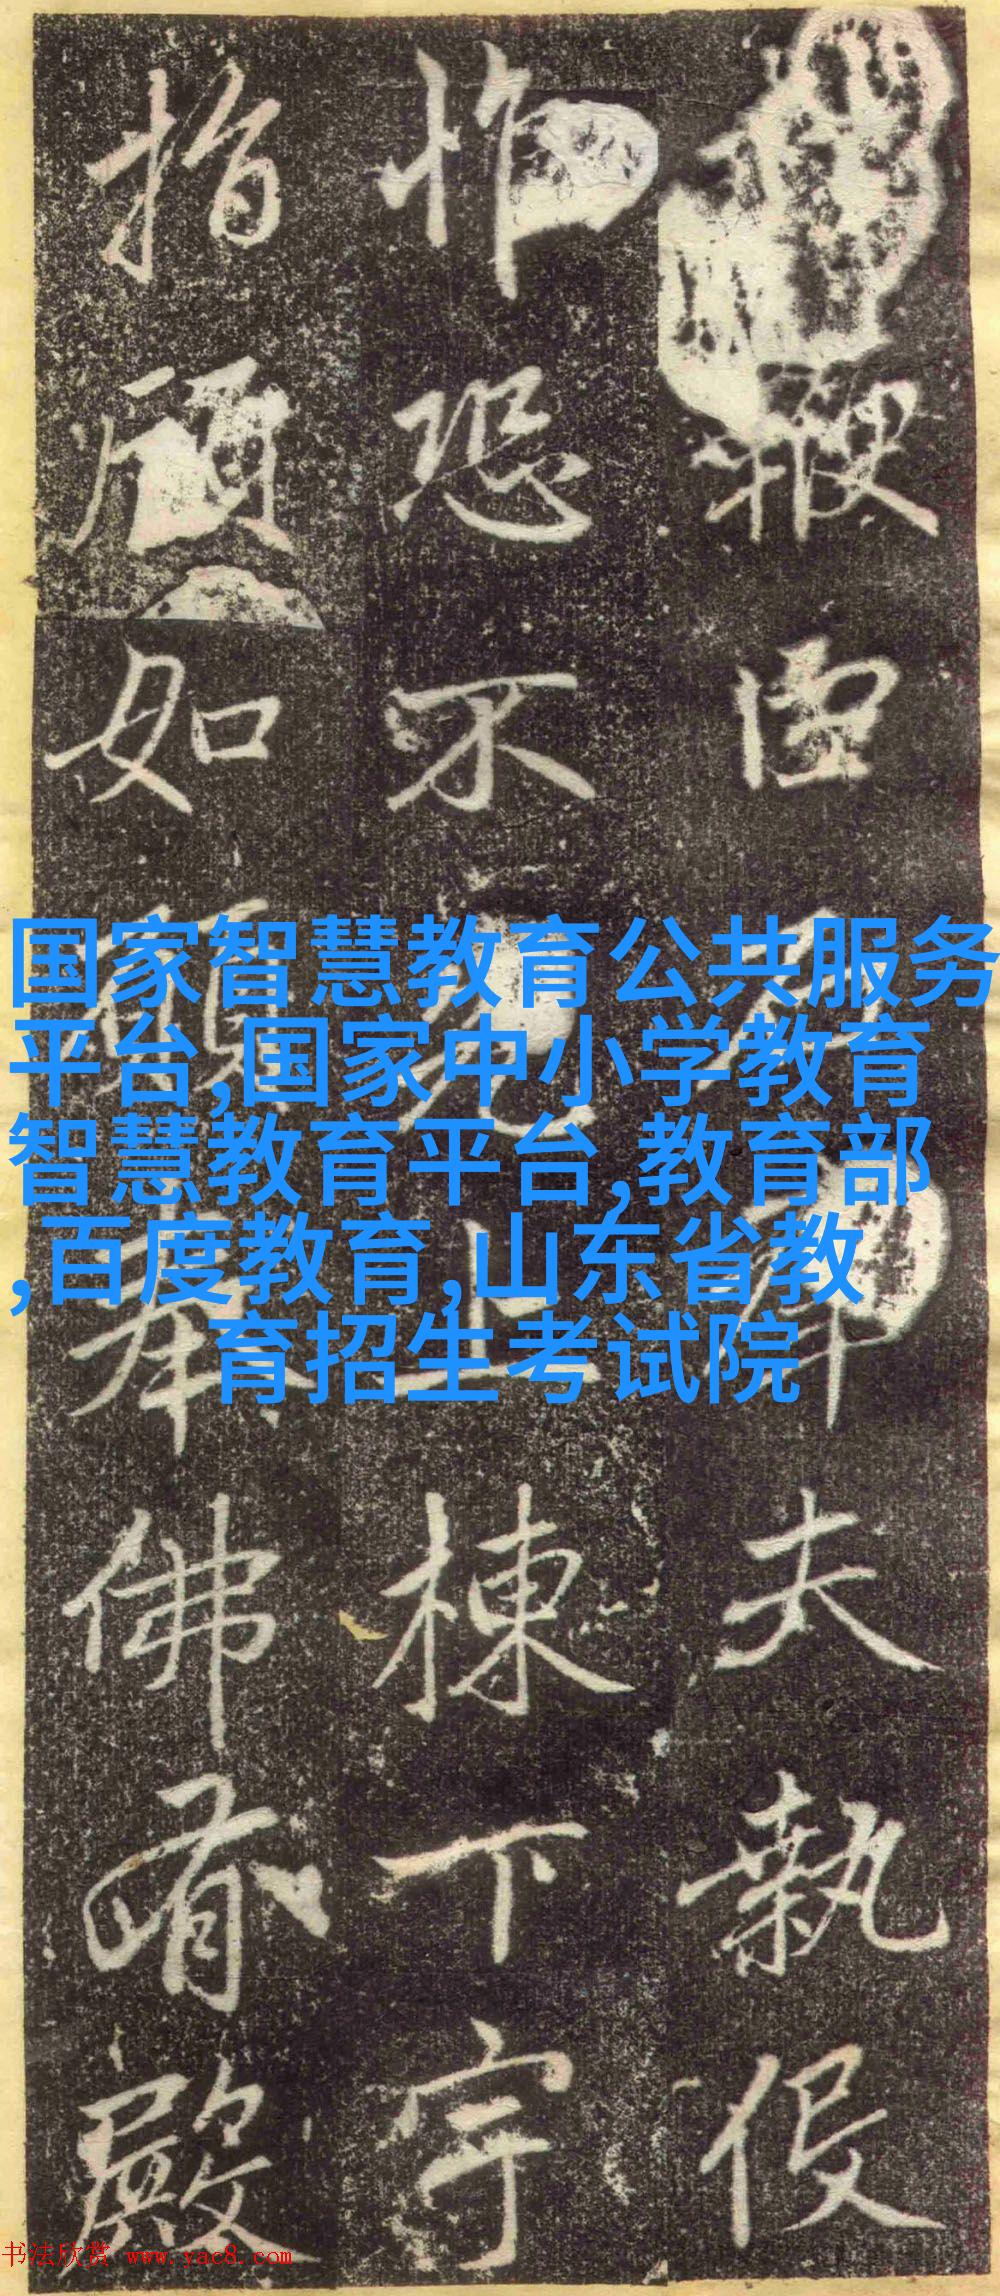 夫執役
恐不克上棟下宇
指顧如願奉佛有殿
国家智慧教育公共服务
平台,国家中小学教育
智慧教育平台,教育部
,百度教育,山东省教
育招生考试院
书法欣赏 www.yac8.com